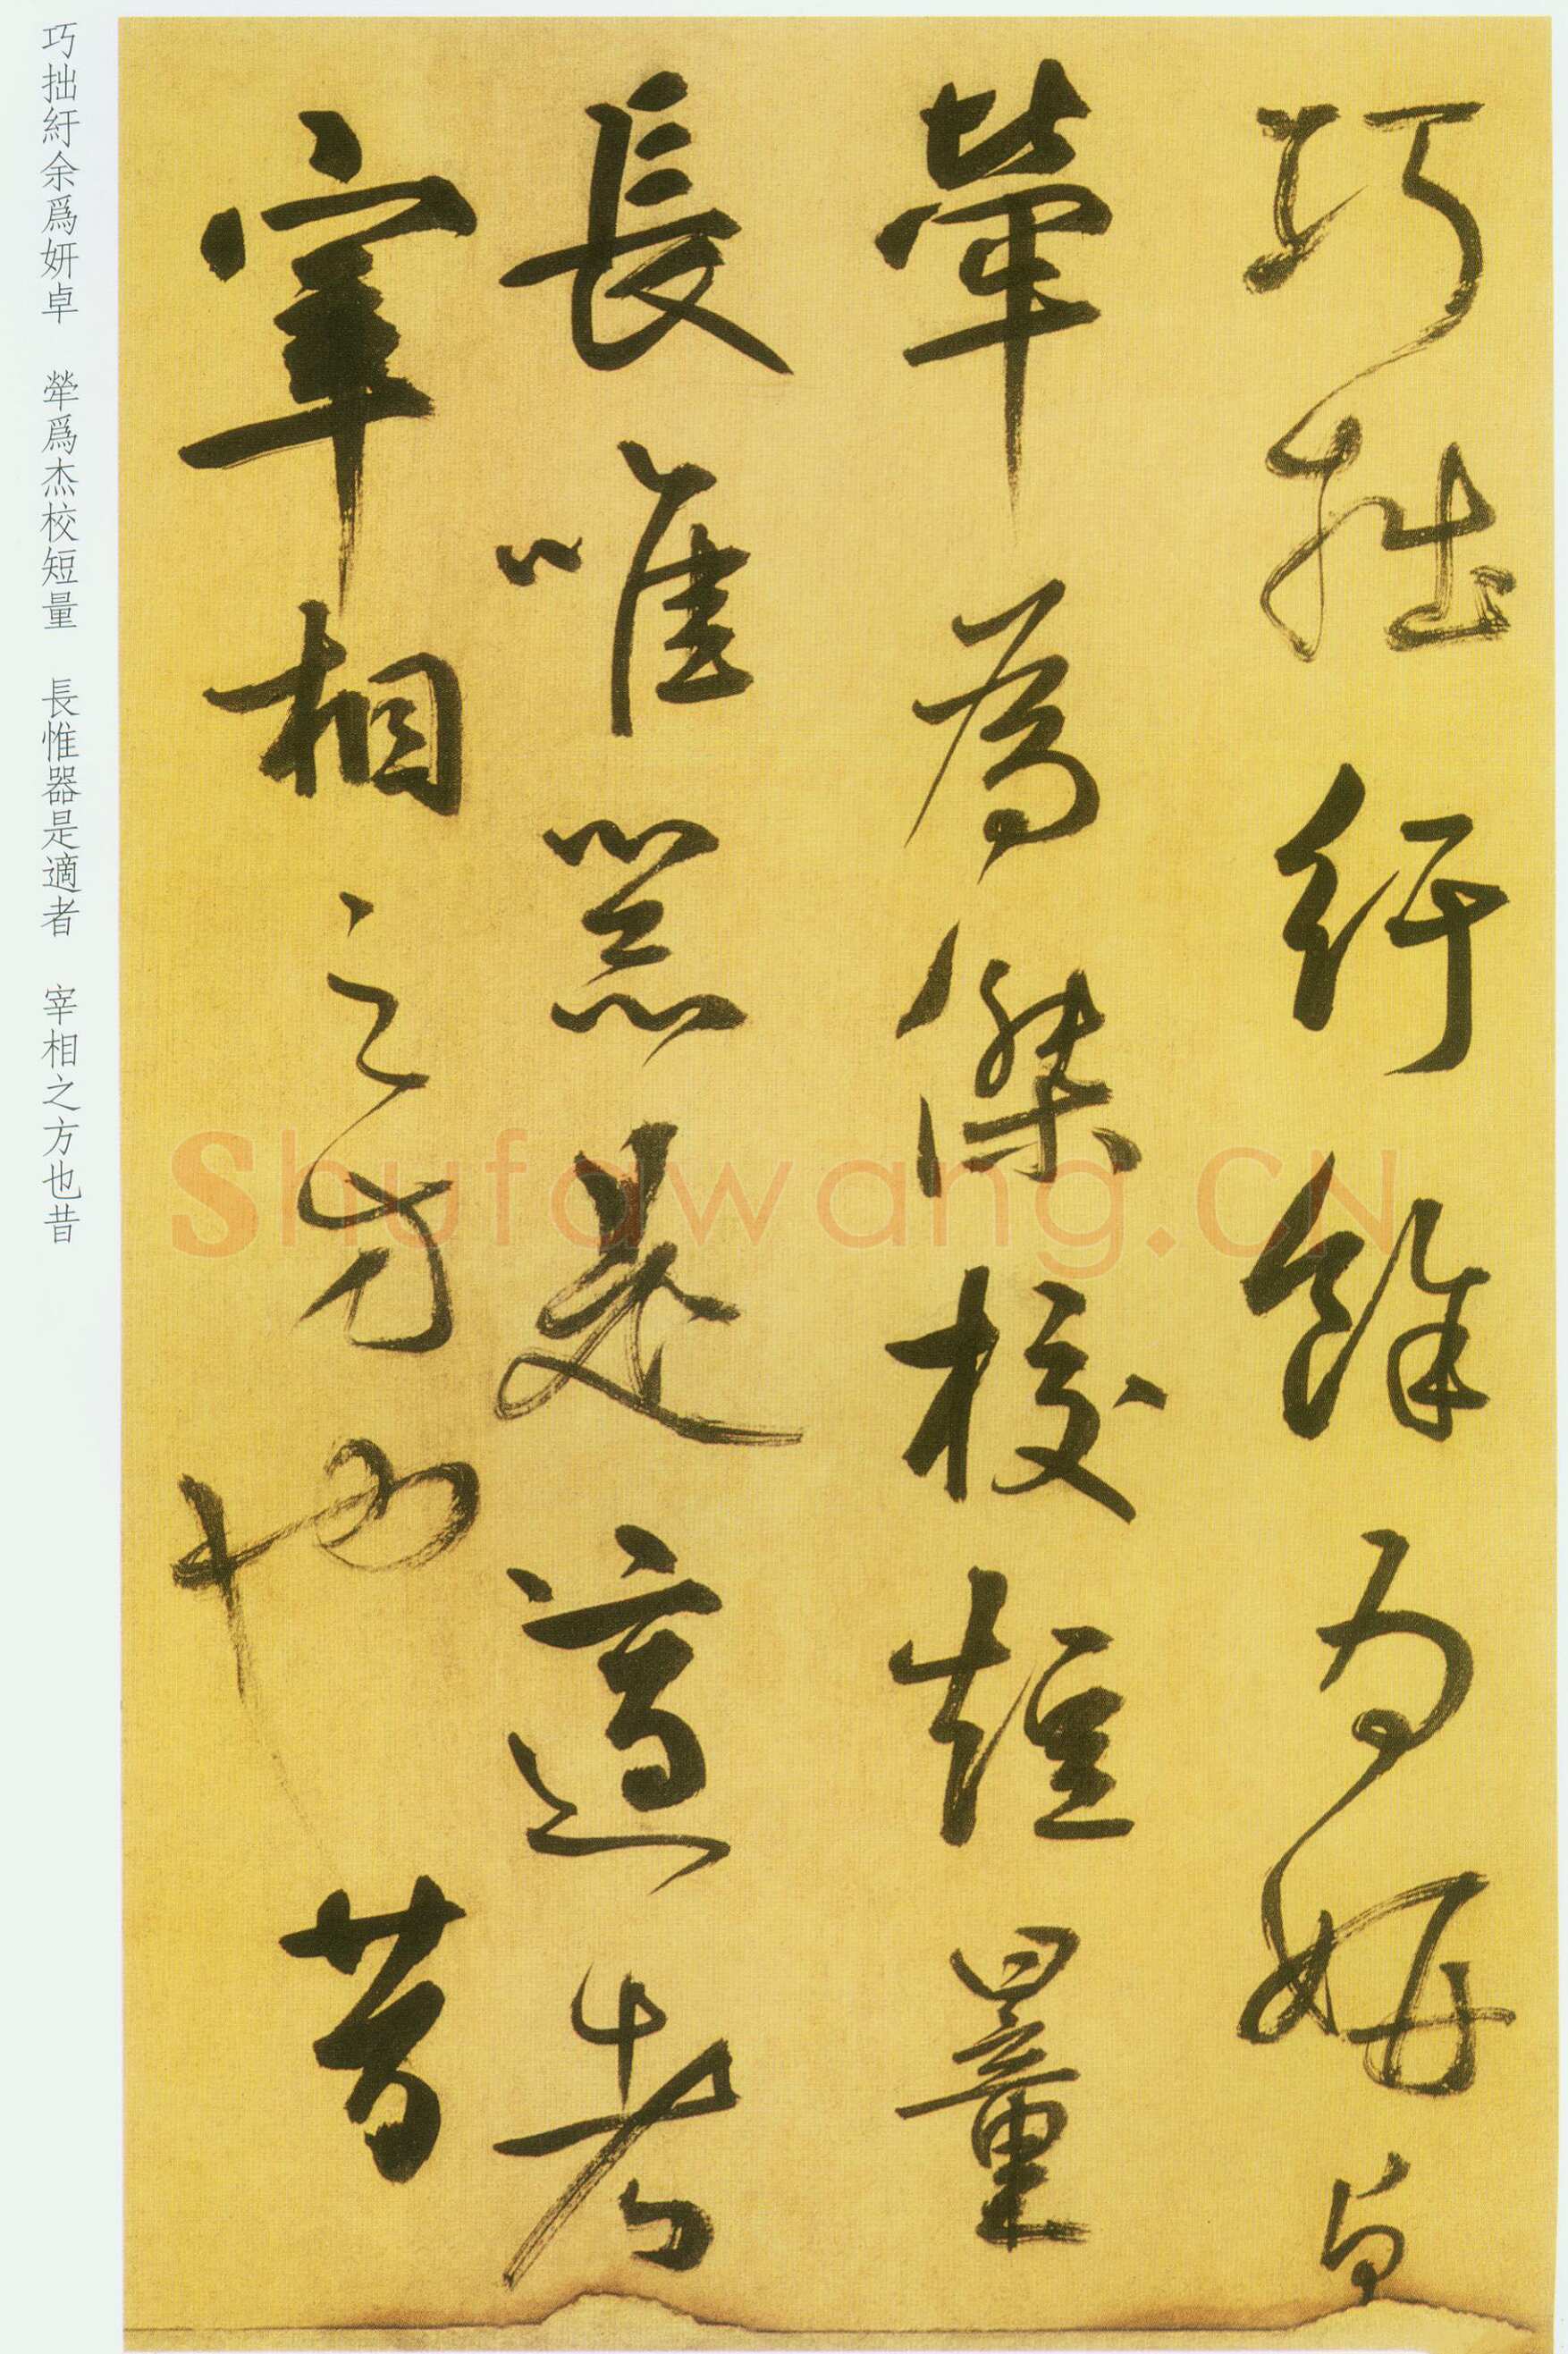 巧拙紆餘为妍卓
犖為傑校短量
長唯器是適者
宰相之方也昔
巧拙紆余爲妍卓　犖爲杰校短量　長惟器是適者　宰相之方也昔
Shufawang.CN